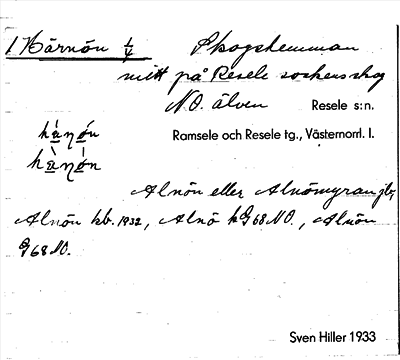 1 Härnön 1/4 Skogshemman
mitt på Resele sockens skog
N.O. älven Resele s:n.
hạ̀ŋǿ̣n Ramsele och Resele tg., Västernorrl. l.
hạ̀ŋø̣̀n
Alnön eller Alnömyran jbr,
Alnön kb. 1932, Alnö kG 68 NO., Alnön
G 68 NO.
Sven Hiller 1933